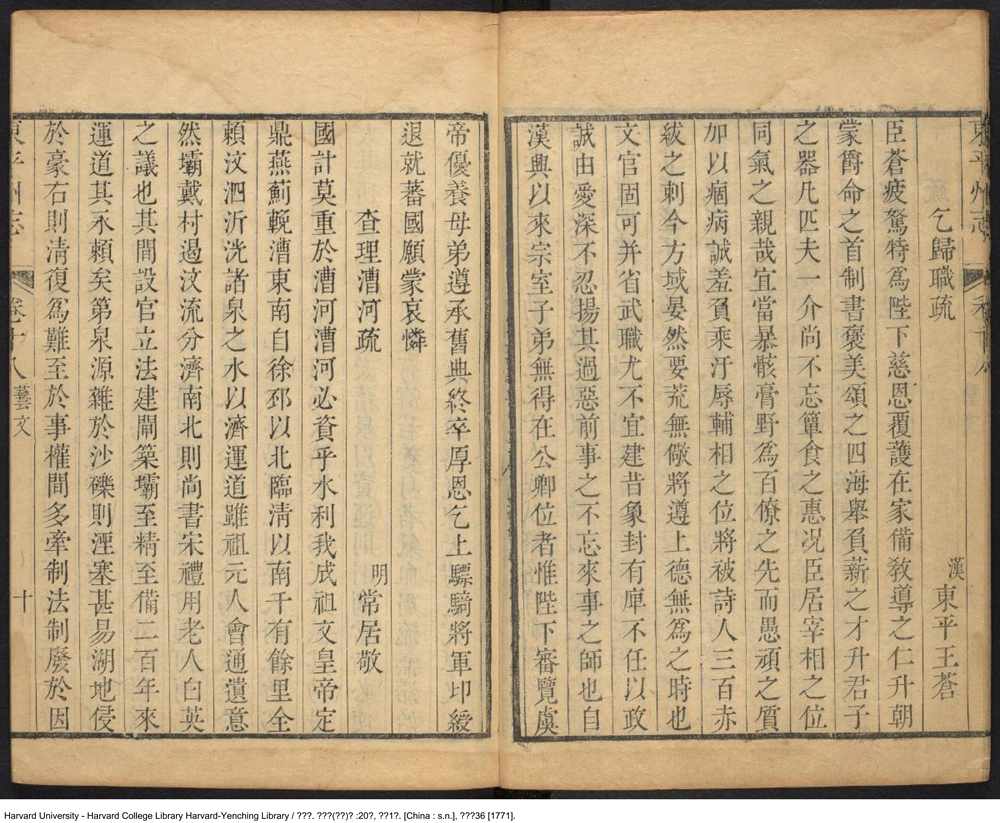 東平州志
乞歸職疏 漢 東平王蒼
臣蒼疲駑特爲陛下慈恩覆護在家備敎導之仁升朝
蒙爵命之首制書褒美頌之四海舉負薪之才升君子
之器凡匹夫一介尚不忘簞食之惠況臣居宰相之位
同氣之親哉宜當暴骸膏野爲百僚之先而愚頑之質
加以痼病誠羞負乘汙辱輔相之位將被詩人三百赤
紱之刺今方域晏然要荒無儆將遵上德無爲之時也
文官固可并省武職尤不宜建昔象封有庳不任以政
誠由愛深不忍揚其過惡前事之不忘來事之師也自
漢興以來宗室子弟無得在公卿位者惟陛下審覽虞
帝優養母弟遵承舊典終卒厚恩乞上驃騎將軍印綬
退就蕃國願蒙哀憐
查理漕河疏 明 常居敬
國計莫重於漕河漕河必資乎水利我成祖文皇帝定
鼎燕薊輓漕東南自徐邳以北臨清以南千有餘里全
賴汶泗沂洸諸泉之水以濟運道雖祖元人會通遺意
然壩戴村遏汶流分濟南北則尚書宋禮用老人白英
之議也其間設官立法建閘築壩至精至備二百年來
運道其永賴矣第泉源雜於沙礫則湮塞甚易湖地侵
於豪右則清復爲難至於事權間多牽制法制廢於因
東平州志 卷十八 藝文 十
Harvard University - Harvard College Library Harvard-Yenching Library / ???. ???(??)? :20?, ??1?. [China : s.n.], ???36 [1771].